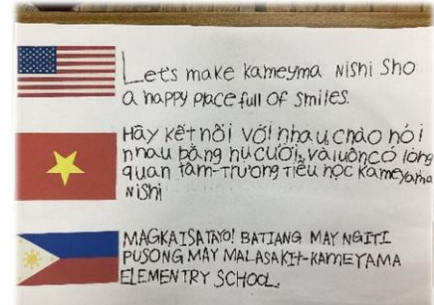 Let's make kameyma Nishi Sho
a happy place full of smiles.
Hãy kết nối với nhau, chào hỏi
nhau bằng nụ cười, và luôn có lòng
quan tâm-Trường Tiểu học Kameyama
Nishi
MAGKAISA TAYO! BATIANG MAY NGITI
PUSONG MAY MALASAKIT-KAMEYAMA
ELEMENTRY SCHOOL.